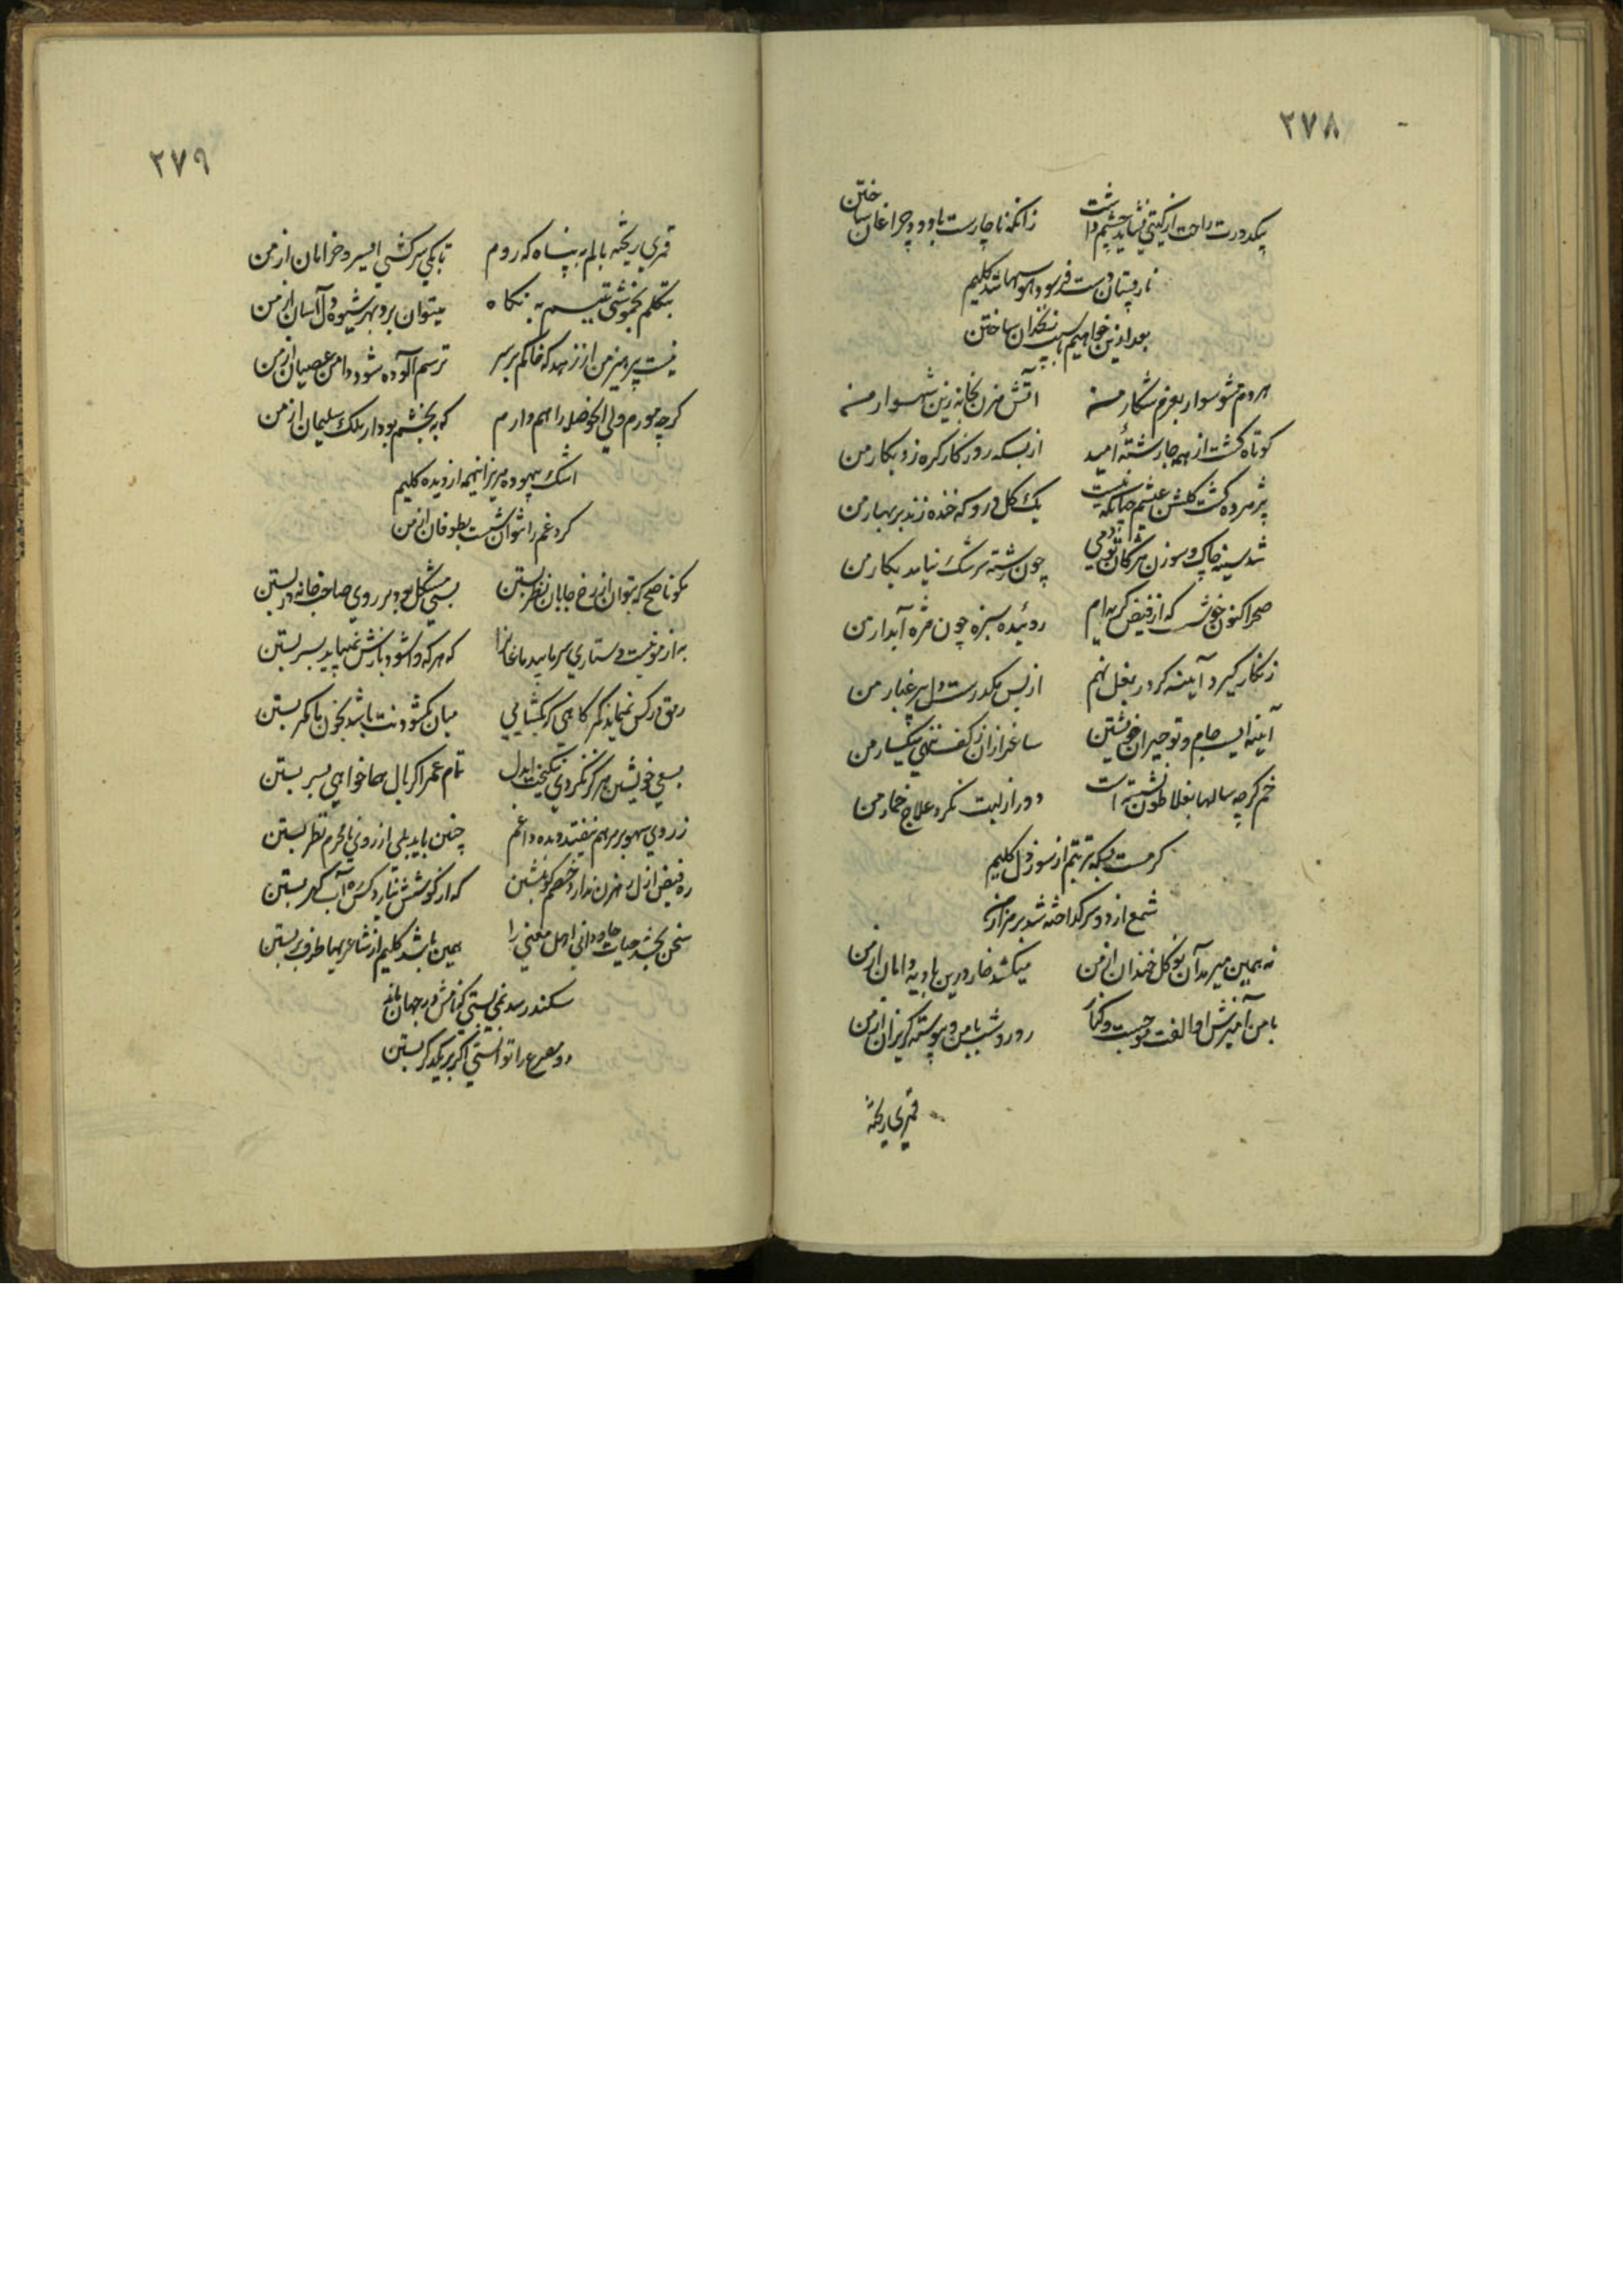 ۲۷۸
بیکدورت راحت از گیتی نشاید چشم داشت زانکه ناچارست با دود چراغان ساختن
نارپستان دست فرسود هوسها شد کلیم
بعد ازین خواهیم با سیب زنخدان ساختن
هردم مشو سوار بعزم شکار من آتش مزن بخانه زین شهسوار من
کوتاه گشت از همه جا رشته امید از بسکه روزگار گره زد بکار من
پژمرده گشت گلشن عیشم چنانکه نیست یک گل درو که خنده زند بر بهار من
شد سینه چاک و سوزن مژگان تو دمی چون رشته سرشک نیاید بکار من
صحرا کنون خوشست که از فیض گریه‌ام روئیده سبزه چون مژه آبدار من
زنگار گیرد آینه گر در بغل نهم از بس مکدرست دل پر غبار من
آیینه ایست جام و تو حیران خویشتن ساغر ازان ز کف ننهی میگسار من
خم گرچه سالها بفلاطون نشسته است دور از لبت نکرد علاج خمار من
گرمست بسکه تربتم از سوز دل کلیم
شمع از دو سر گداخته شد بر مزار من
نه همین میرمد آن نوگل خندان از من میکشد خار درین بادیه دامان از من
با من آمیزش او الفت موجست و کنار روز و شب با من و پیوسته گریزان از من
قمری ریخته
۲۷۹
قمری ریخته بالم به پناه که روم تا بکی سرکشی ای سرو خرامان از من
بتکلم بخموشی بتبسم به نگاه میتوان برد بهر شیوه دل آسان از من
نیست پرهیز من از زهد که خاکم بر سر ترسم آلوده شود دامن عصیان از من
گرچه مورم ولی آن حوصله را هم دارم که ببخشم بود ار ملک سلیمان از من
اشک بیهوده مریز اینهمه از دیده کلیم
گرد غم را نتوان شست بطوفان از من
مگو ناصح که بتوان از رخ جانان نظر بستن بسی مشکل بود بر روی صاحبخانه در بستن
که هر که وا شود بازش نمیباید بسر بستن
رمق در کس نمیماند کمر گاهی که بگشایی میان بگشودنت باشد بخون ما کمر بستن
بسعی خویشتن هرگز نگردی نیکبخت ایدل تمام عمر اگر بال هما خواهی بسر بستن
ز روی سهو بر مرهم نیفتد دیده داغم چنین باید بلی از روی نامحرم نظر بستن
ره فیض ازل رهزن ندارد خصم گو بنشین که از کوشش نیارد کس ره آب گهر بستن
سخن بخشد حیات جاودانی اهل معنی را همین باشد کلیم از شاعریها طرف بربستن
سکندر سد نمی بستی که نامش در جهان ماند
دو مصرع را توانستی اگر بر یکدگر بستن